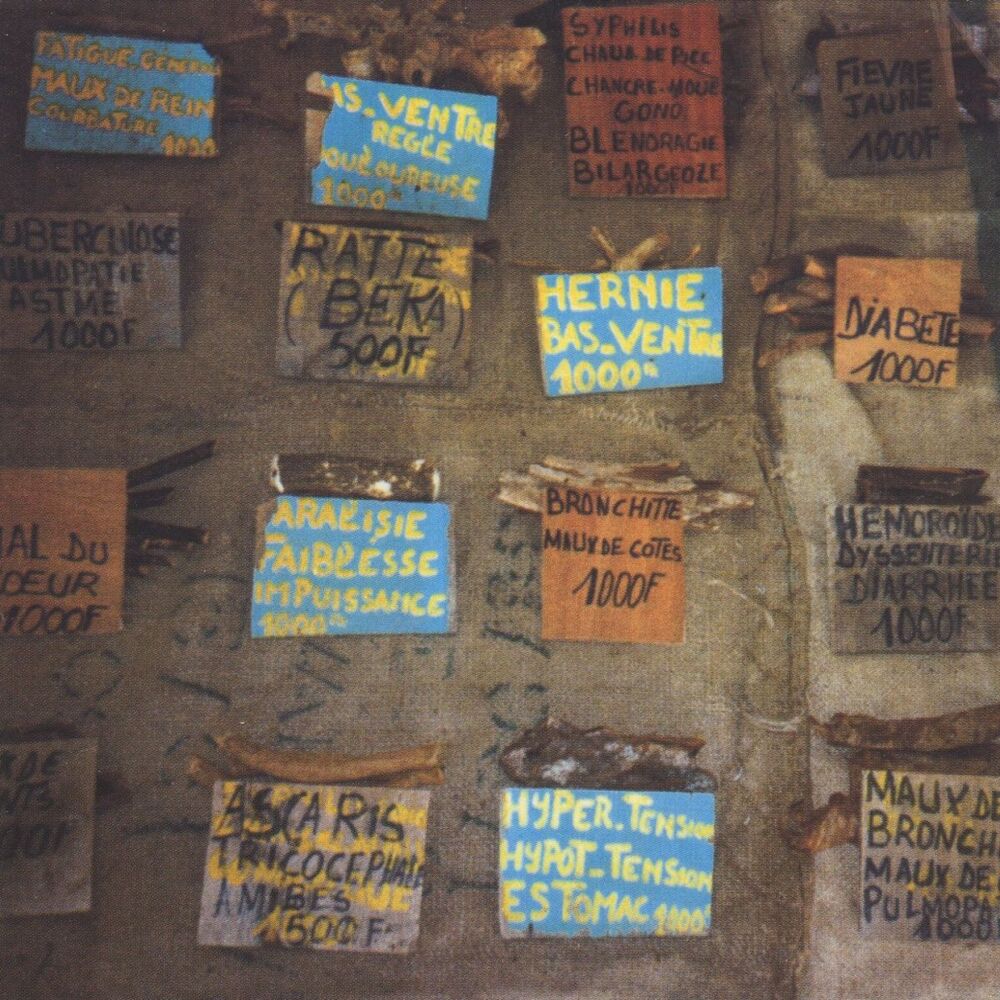 FATIGUE. GENERA
MAUX DE REIN
COURBATURE
1000
AS_VENTRE
REGLE
OULOUREUSE
1000
SYPHILIS
CHAUD. DE PICC
CHANCRE-MOUE
GONO
BLENDRAGIE
BILARGEOZE
1000F
FIEVRE
JAUNE
1000F
UBERCULOSE
ULMOPATIE
ASTME
1000F
RATTE
(BEKA)
500F
HERNIE
BAS_VENTRE
1000F
DIABETE
1000F
AL DU
OEUR
1000F
ARALISIE
FAIBLESSE
IMPUISSANCE
1000
BRONCHITTE
MAUX DE COTES
1000F
HEMOROIDE
DYSSENTERIE
DIARRHEE
1000F
X DE
NTS
00F
ASCARIS
TRICOCEPHALE
AMIBES
1500F
HYPER_TENSION
HYPOT_TENSION
ESTOMAC 1000F
MAUX DE
BRONCHI
MAUX DE
PULMOPA
1000